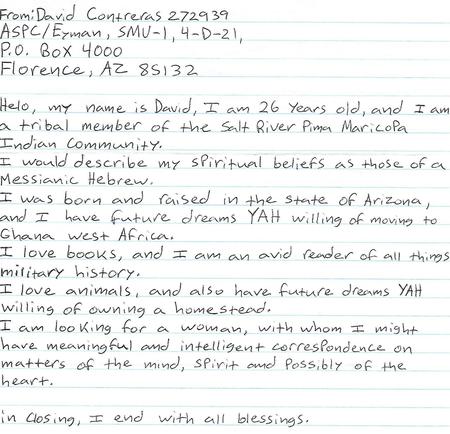 From: David Contreras 272939
ASPC/Eyman, SMU-1, 4-D-21,
P.O. Box 4000
Florence, AZ 85132
Helo, my name is David, I am 26 years old, and I am
a tribal member of the Salt River Pima Maricopa
Indian Community.
I would describe my spiritual beliefs as those of a
Messianic Hebrew.
I was born and raised in the state of Arizona,
and I have future dreams YAH willing of moving to
Ghana west Africa.
I love books, and I am an avid reader of all things
military history.
I love animals, and also have future dreams YAH
willing of owning a homestead.
I am looking for a woman, with whom I might
have meaningful and intelligent correspondence on
matters of the mind, spirit and possibly of the
heart.
in closing, I end with all blessings.